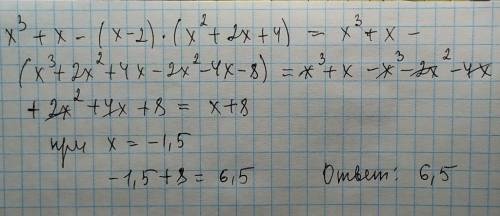 x³ + x - (x-2)·(x²+2x+4) = x³ + x -
(x³+2x²+4x-2x²-4x-8) = x³ + x - x³ - 2x² - 4x
+ 2x² + 4x + 8 = x+8
при x = -1,5
-1,5+8 = 6,5 Ответ: 6,5